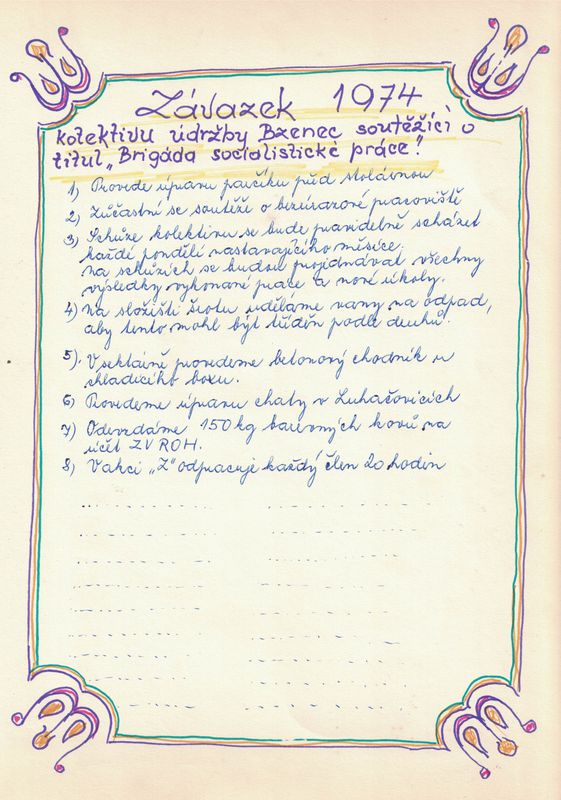 Závazek 1974
kolektivu údržby Bzenec soutěžící o
titul „Brigáda socialistické práce".
1) Provede úpravu parčíku před stolárnou
2) Zúčastní se soutěže o bezúrazové pracoviště
3) Schůze kolektivu se bude pravidelně scházet
každé pondělí nastávajícího měsíce.
Na schůzích se budou projednávat všechny
výsledky vykonané práce a nové úkoly.
4) Na složišti šrotu uděláme vany na odpad,
aby tento mohl být tříděn podle druhů.
5) V sektárně provedeme betonový chodník u
chladícího boxu.
6) Provedeme úpravu chaty v Luhačovicích
7) Odevzdáme 150 kg barevných kovů na
účet ZV ROH.
8) V akci „Z" odpracuje každý člen 20 hodin